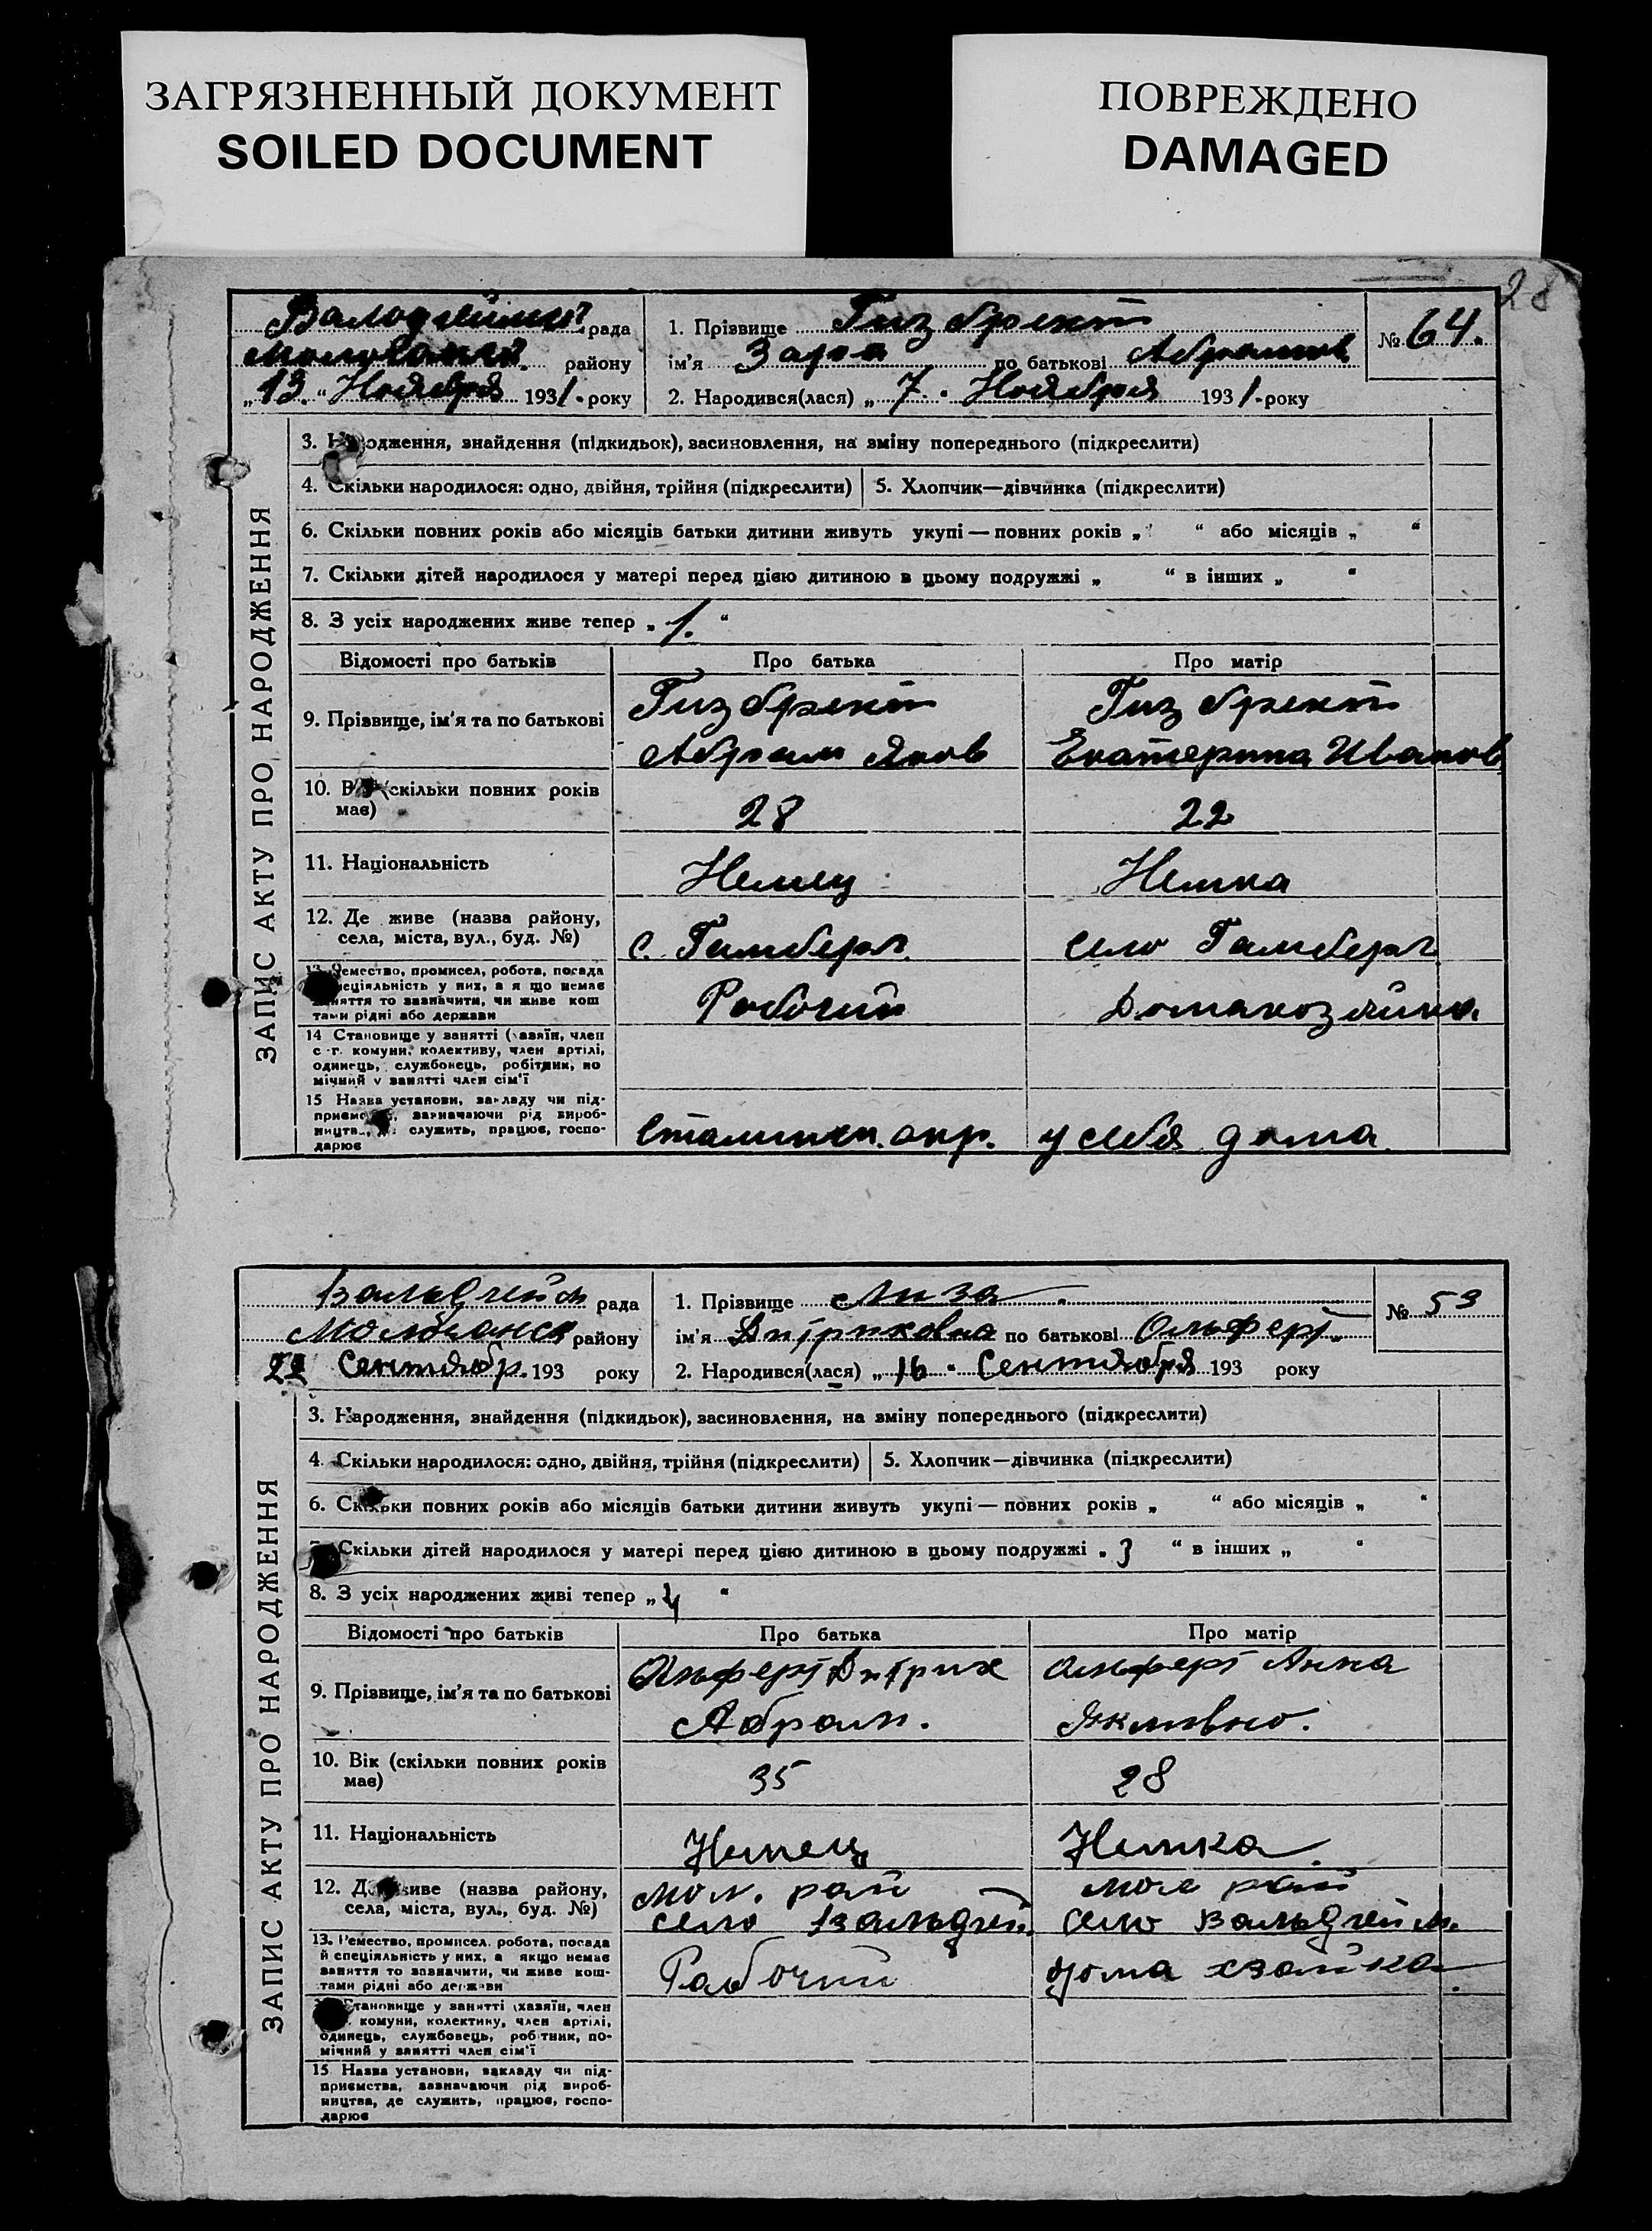 ЗАГРЯЗНЕННЫЙ ДОКУМЕНТ
SOILED DOCUMENT
ПОВРЕЖДЕНО
DAMAGED
28
рада
району
„13.“ Ноября 1931. року
1. Прізвище Гизбрехт
ім'я Зара по батькові Абрамов
2. Народився(лася) „7. Ноября 1931.року
№ 64.
ЗАПИС АКТУ ПРО НАРОДЖЕННЯ
3. Народження, знайдення (підкидьок), засиновлення, на зміну попереднього (підкреслити)
4. Скільки народилося: одно, двійня, трійня (підкреслити)
5. Хлопчик—дівчинка (підкреслити)
6. Скільки повних років або місяців батьки дитини живуть укупі — повних років „ “ або місяців „ “
7. Скільки дітей народилося у матері перед цією дитиною в цьому подружжі „ “ в інших „ “
8. З усіх народжених живе тепер „1.“
Відомості про батьків
Про батька
Про матір
9. Прізвище, ім'я та по батькові
Гизбрехт
Абрам Яков
Гизбрехт
Екатерина Иванов
10. (скільки повних років
має)
28
22
11. Національність
Немец
Немка
12. Де живе (назва району,
села, міста, вул., буд. №)
с. Гамберг.
село Гамберг
13 Ремество, промисел, робота, посада
спеціяльність у них, а я що немає
заняття то зазначити, чи живе кош
тами рідні або держави
Рабочий
Домахозяйка.
14 Становище у занятті (хазяїн, член
с-г. комуни, колективу, член артілі,
одинець, службовець, робітник, по
мічний у занятті член сім'ї
15 Назва установи, закладу чи під-
приємства, зазначаючи рід вироб-
ництва, де служить, працює, госпо-
дарює
Сталинск. окр.
у себя дома
Вальдгейм рада
Молочанск району
22 Сентябр. 193 року
1. Прізвище Лиза
ім'я Дитриковна по батькові Ольферт
2. Народився(лася) „16“ Сентября 193 року
№ 53
ЗАПИС АКТУ ПРО НАРОДЖЕННЯ
3. Народження, знайдення (підкидьок), засиновлення, на зміну попереднього (підкреслити)
4. Скільки народилося: одно, двійня, трійня (підкреслити)
5. Хлопчик—дівчинка (підкреслити)
6. Скільки повних років або місяців батьки дитини живуть укупі — повних років „ “ або місяців „ “
7. Скільки дітей народилося у матері перед цією дитиною в цьому подружжі „3 “ в інших „ “
8. З усіх народжених живі тепер „4 “
Відомості про батьків
Про батька
Про матір
9. Прізвище, ім'я та по батькові
Ольферт Дитрих
Абрам.
Ольферт Анна
10. Вік (скільки повних років
має)
35
28
11. Національність
Нимец
Нимка
12. Де живе (назва району,
села, міста, вул., буд. №)
Мол. рай
село Вальдгей.
Мол рай
село Вальдгейм.
13. Ремество, промисел. робота, посада
й спеціяльність у них, а якщо немає
заняття то зазначити, чи живе кош-
тами рідні або держави
Рабочий
дома хзайка
Становище у занятті (хазяїн, член
комуни, колективу, член артілі,
одинець, службовець, робітник, по-
мічний у занятті член сім'ї
15 Назва установи, закладу чи під-
приємства, зазначаючи рід вироб-
ництва, де служить, працює, госпо-
дарює